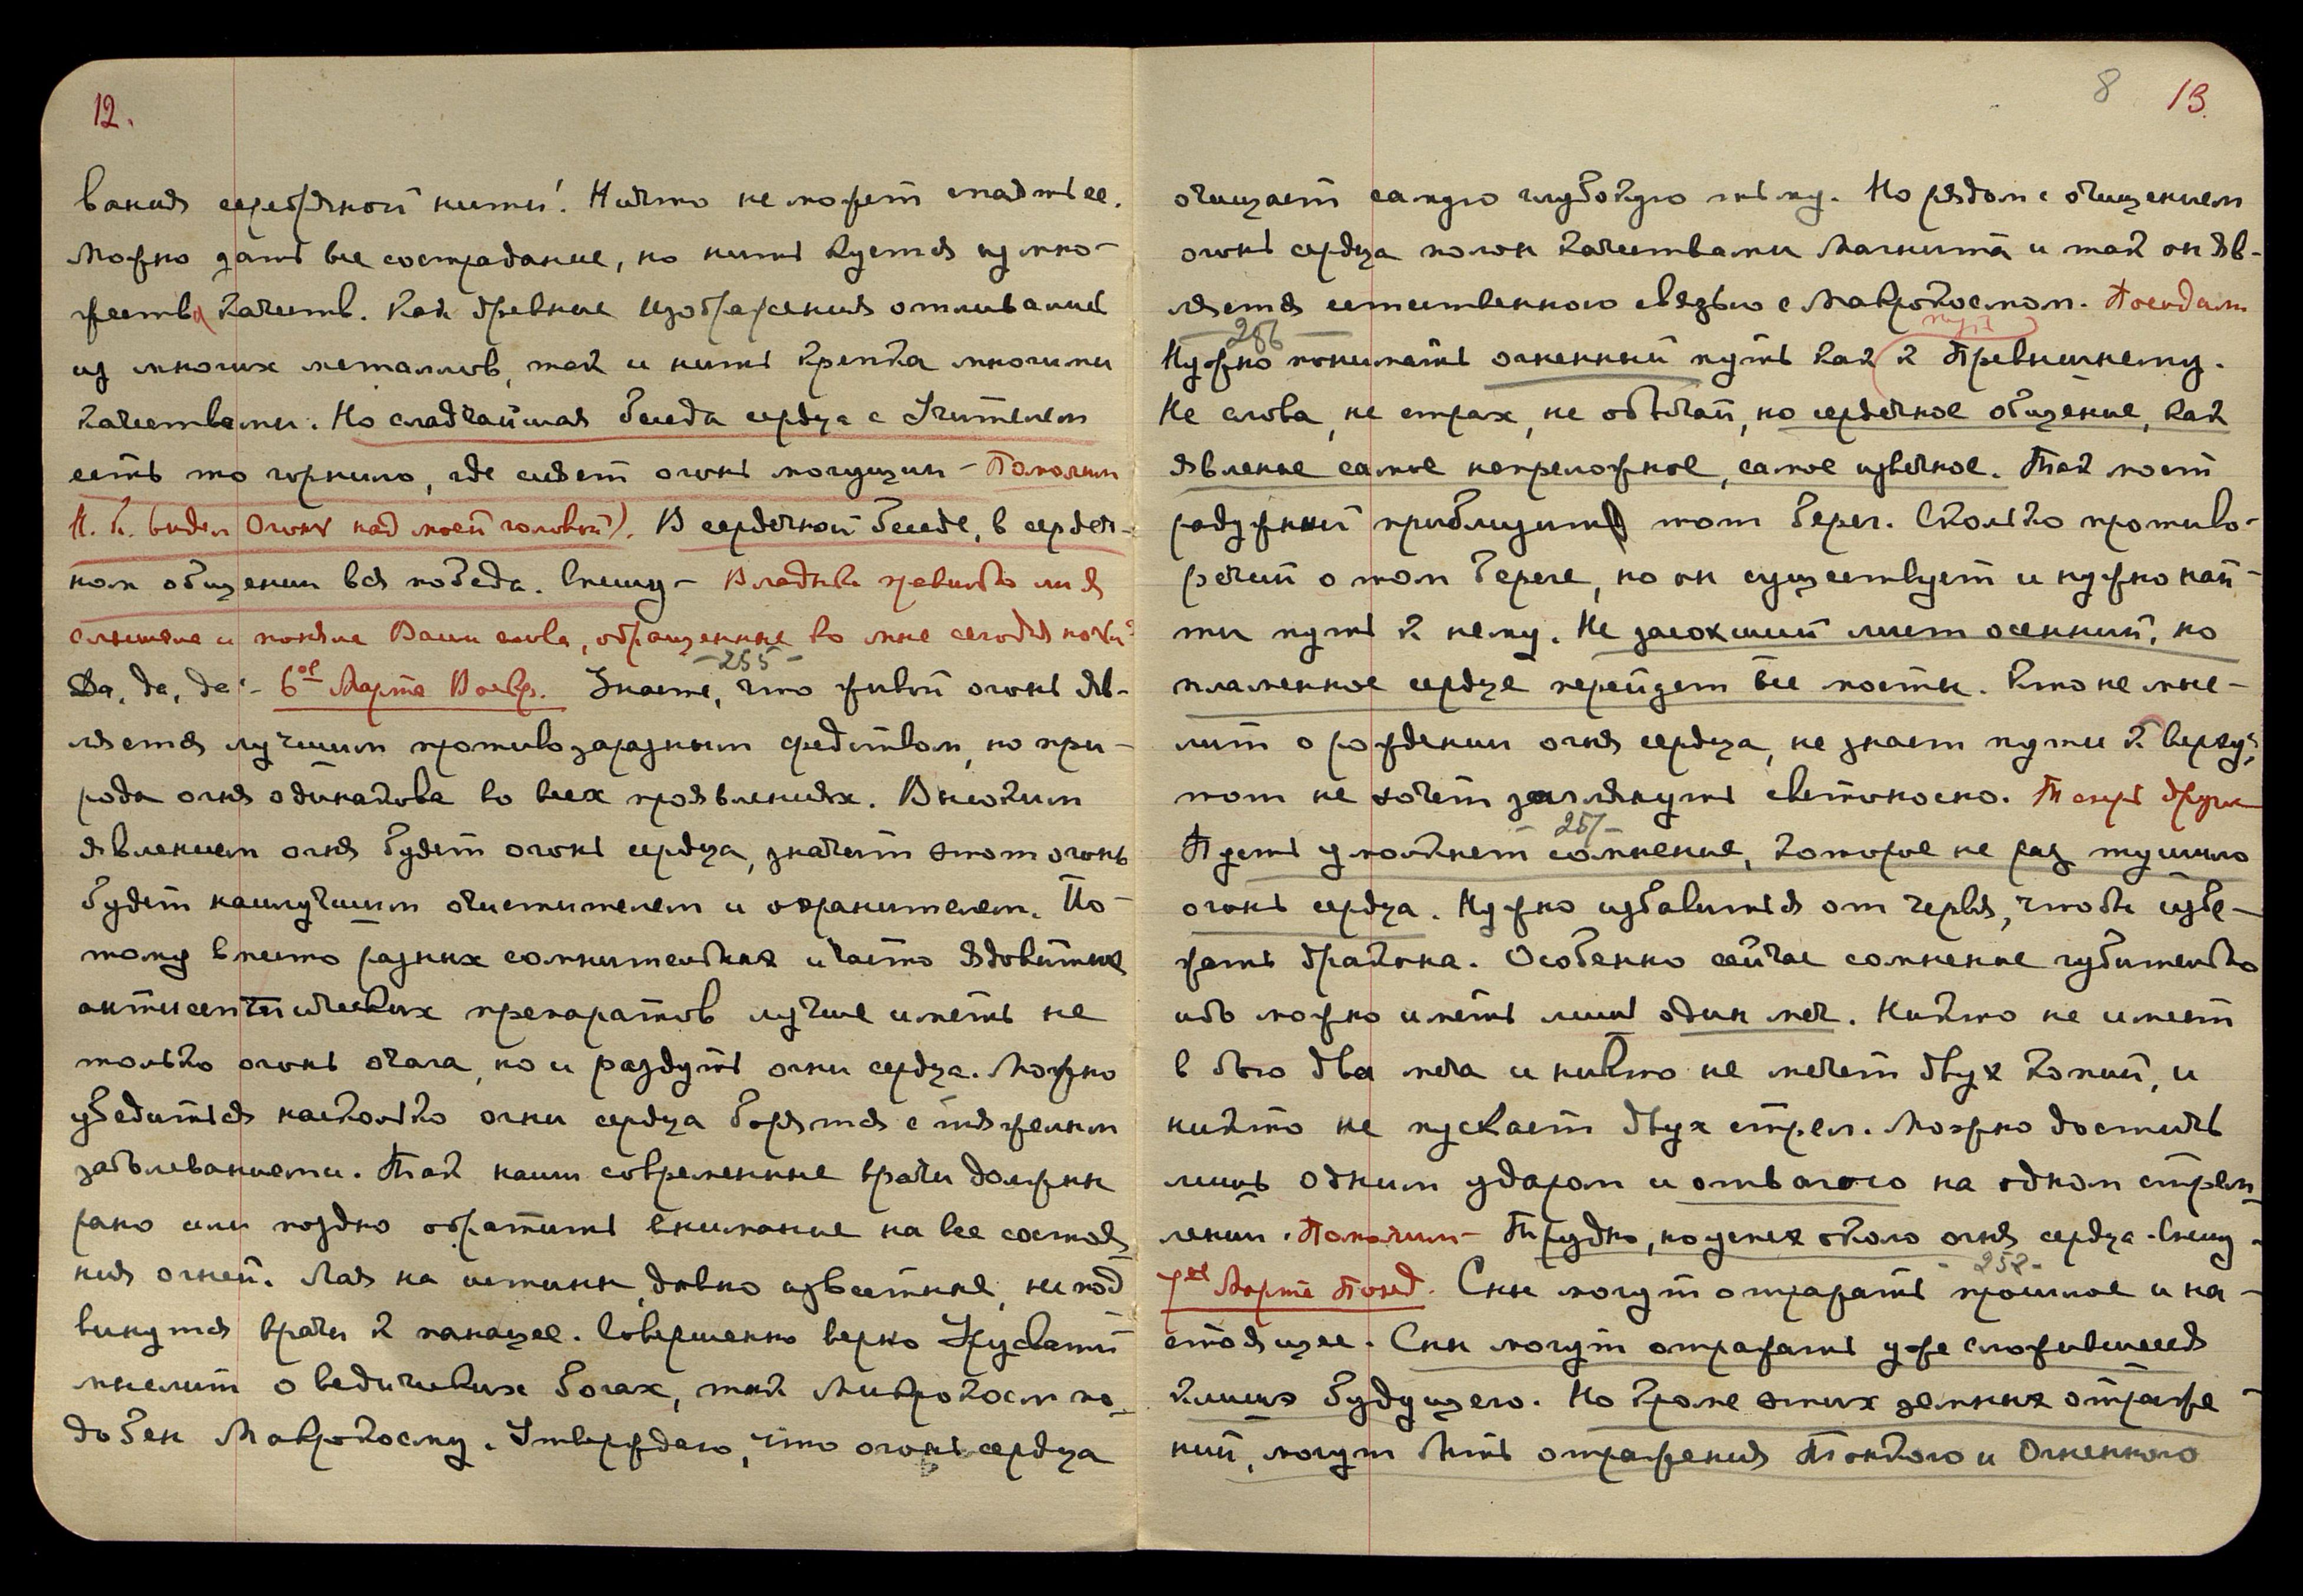 12.
вания серебряной нити! Ничто не может спаять ее.
Можно дать все сострадание, но нить куется из мно-
жества качеств. Как древние изображения отливались
из многих металлов, так и нить крепка многими
качествами. Но сладчайшая беседа сердца с Учителем
есть то горнило, где сияет огонь могущий – Помолчим
Н. К. видел Огонь над моей головой). В сердечной беседе, в сердеч-
ном общении вся победа. Спешу – Владыка правильно ли я
слышала и поняла Ваши слова, обращенные ко мне сегодня ночью?
Да, да, да – 6ое Марта Воскр. Знаете, что живой огонь яв-
– 255 –
ляется лучшим противозаразным средством, но при-
рода огня одинакова во всех проявлениях. Высоким
явлением огня будет огонь сердца, значит этот огонь
будет наилучшим очистителем и охранителем. По-
тому вместо разных сомнительных и часто ядовитых
антисептических препаратов лучше иметь не
только огонь очага, но и раздуть огни сердца. Можно
убедиться насколько огни сердца борятся с тяжелым
заболеваниеми. Так наши современные врачи должны
рано или поздно обратить внимание на все состоя-
ния огней. Мая на истины, давно известные, не под
винутся врачи к панацее. Совершенно верно Урусвати
мыслит о ведических богах, так Микрокосм по-
добен Макрокосму. Утверждаю, что огонь сердца
8 13.
очищает самую глубокую тьму. Но рядом с очищением
огонь сердца полон качествами Магнита и так он яв-
ляется естественною связью с Макрокосмом. Посидим
– 256 –
Нужно понимать огненный путь как путь к Превышнему.
Не слова, не страх, не обычай, но сердечное общение, как
явление самое непреложное, самое извечное. Так мост
радужный приблизит тот берег. Сколько противо-
речий о том береге, но он существует и нужно най-
ти путь к нему. Не засохший лист осенний, но
пламенное сердце перейдет все мосты. Кто не мыс-
лит о рождении огня сердца, не знает пути кверху,
тот не хочет заглянуть светоносно. Теперь другое
– 257 –
Пусть умолкнет сомнение, которое не раз тушило
огонь сердца. Нужно избавиться от червя, чтобы избе-
жать дракона. Особенно сейчас сомнение губительно
ибо можно иметь лишь один меч. Никто не имеет
в бою два меча и никто не мечет двух копий, и
никто не пускает двух стрел. Можно достичь
лишь одним ударом и отвагою на одном стрем-
лении. Помолчим – Трудно, но успех около огня сердца. Спешу –
7ое Марта Понед. Сны могут отражать прошлое и на-
– 258 –
стоящее. Сны могут отражать уже сложившееся
клише будущего. Но кроме этих земных отраже-
ний, могут быть отражения Тонкого и Огненного